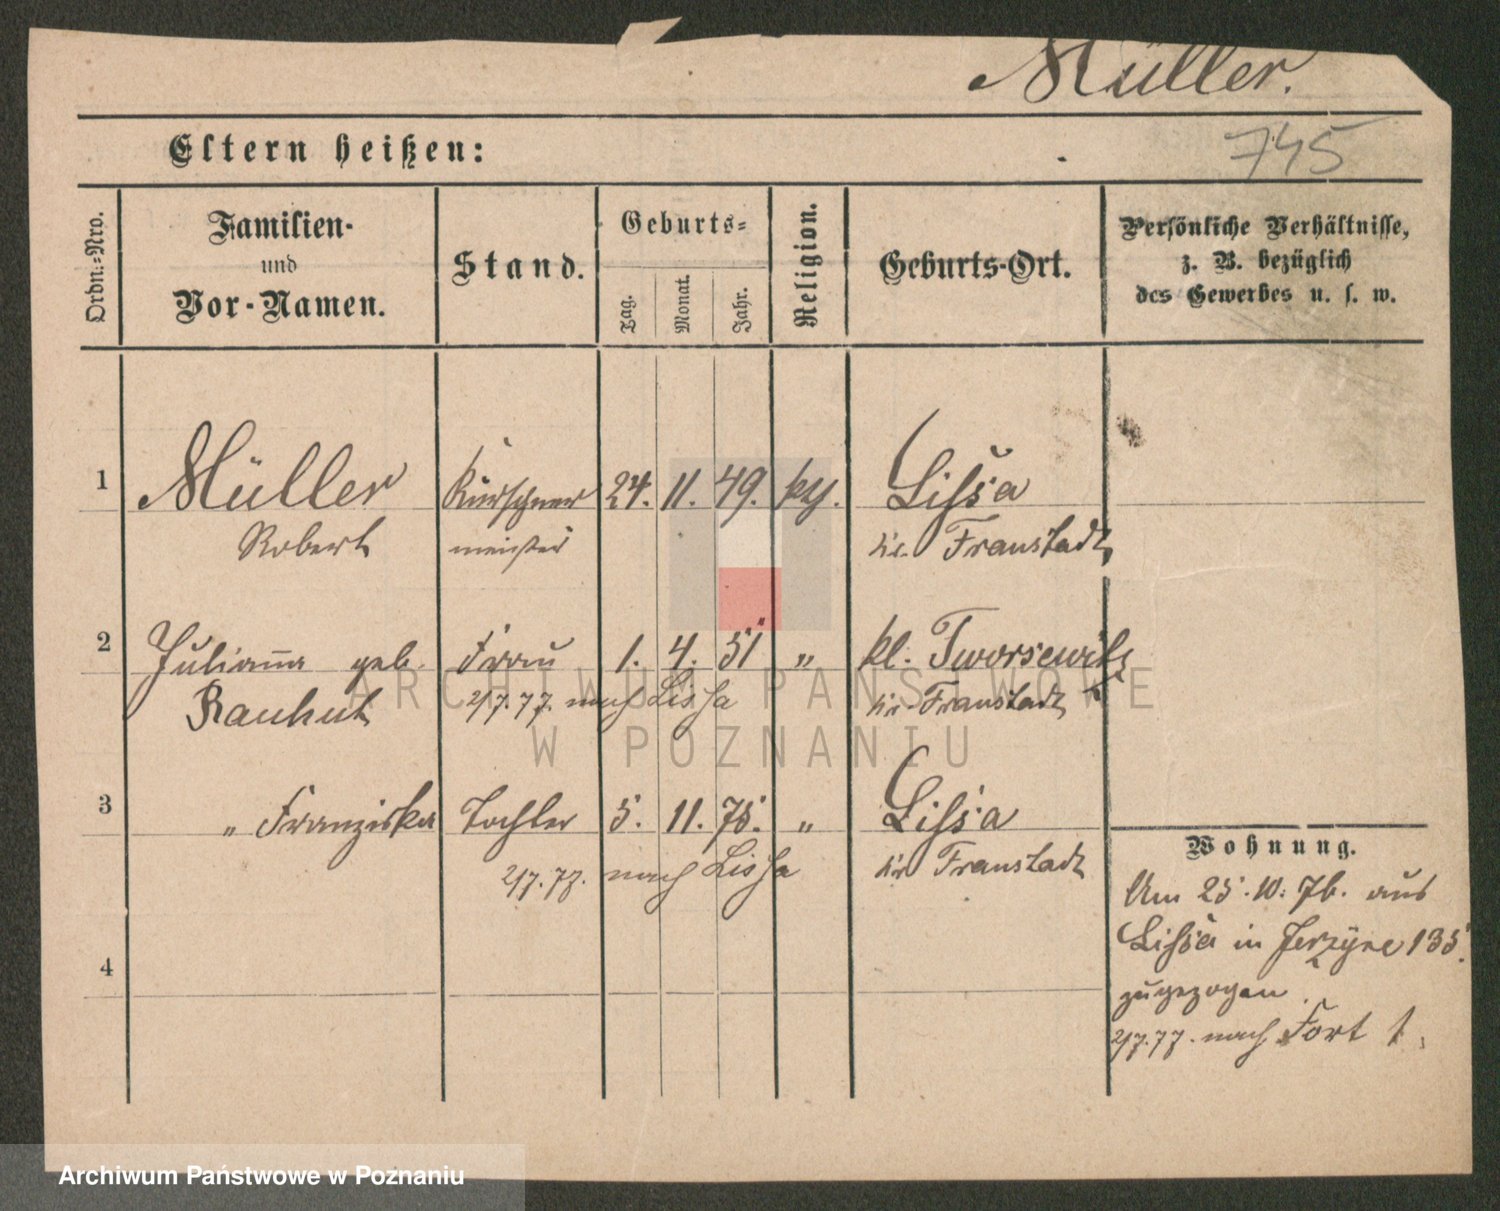 Müller.
745
Eltern heißen:
Ordn.-Nro.
Familien-
und
Vor-Namen.
Stand.
Geburts-
Tag.
Monat.
Jahr.
Religion.
Geburts-Ort.
Persönliche Verhältnisse,
z. B. bezüglich
des Gewerbes u. s. w.
1 Müller Kürschner 24. 11. 49. Lissa
Robert meister kr. Fraustadt
2 Julianna geb. Frau 1. 4. 51 " kl. Tworsewitz
Rauhut 2/7.77. nach Lissa kr. Fraustadt
3 " Franziska Tochter 5. 11. 75. " Lissa
2/7.77. nach Lissa kr Fraustadt
4
Wohnung.
Am 25.10.76. aus
Lissa in Jerzyce 135.
zugezogen.
2/7.77. nach Fort 1.
ARCHIWUM PAŃSTWOWE
W POZNANIU
Archiwum Państwowe w Poznaniu